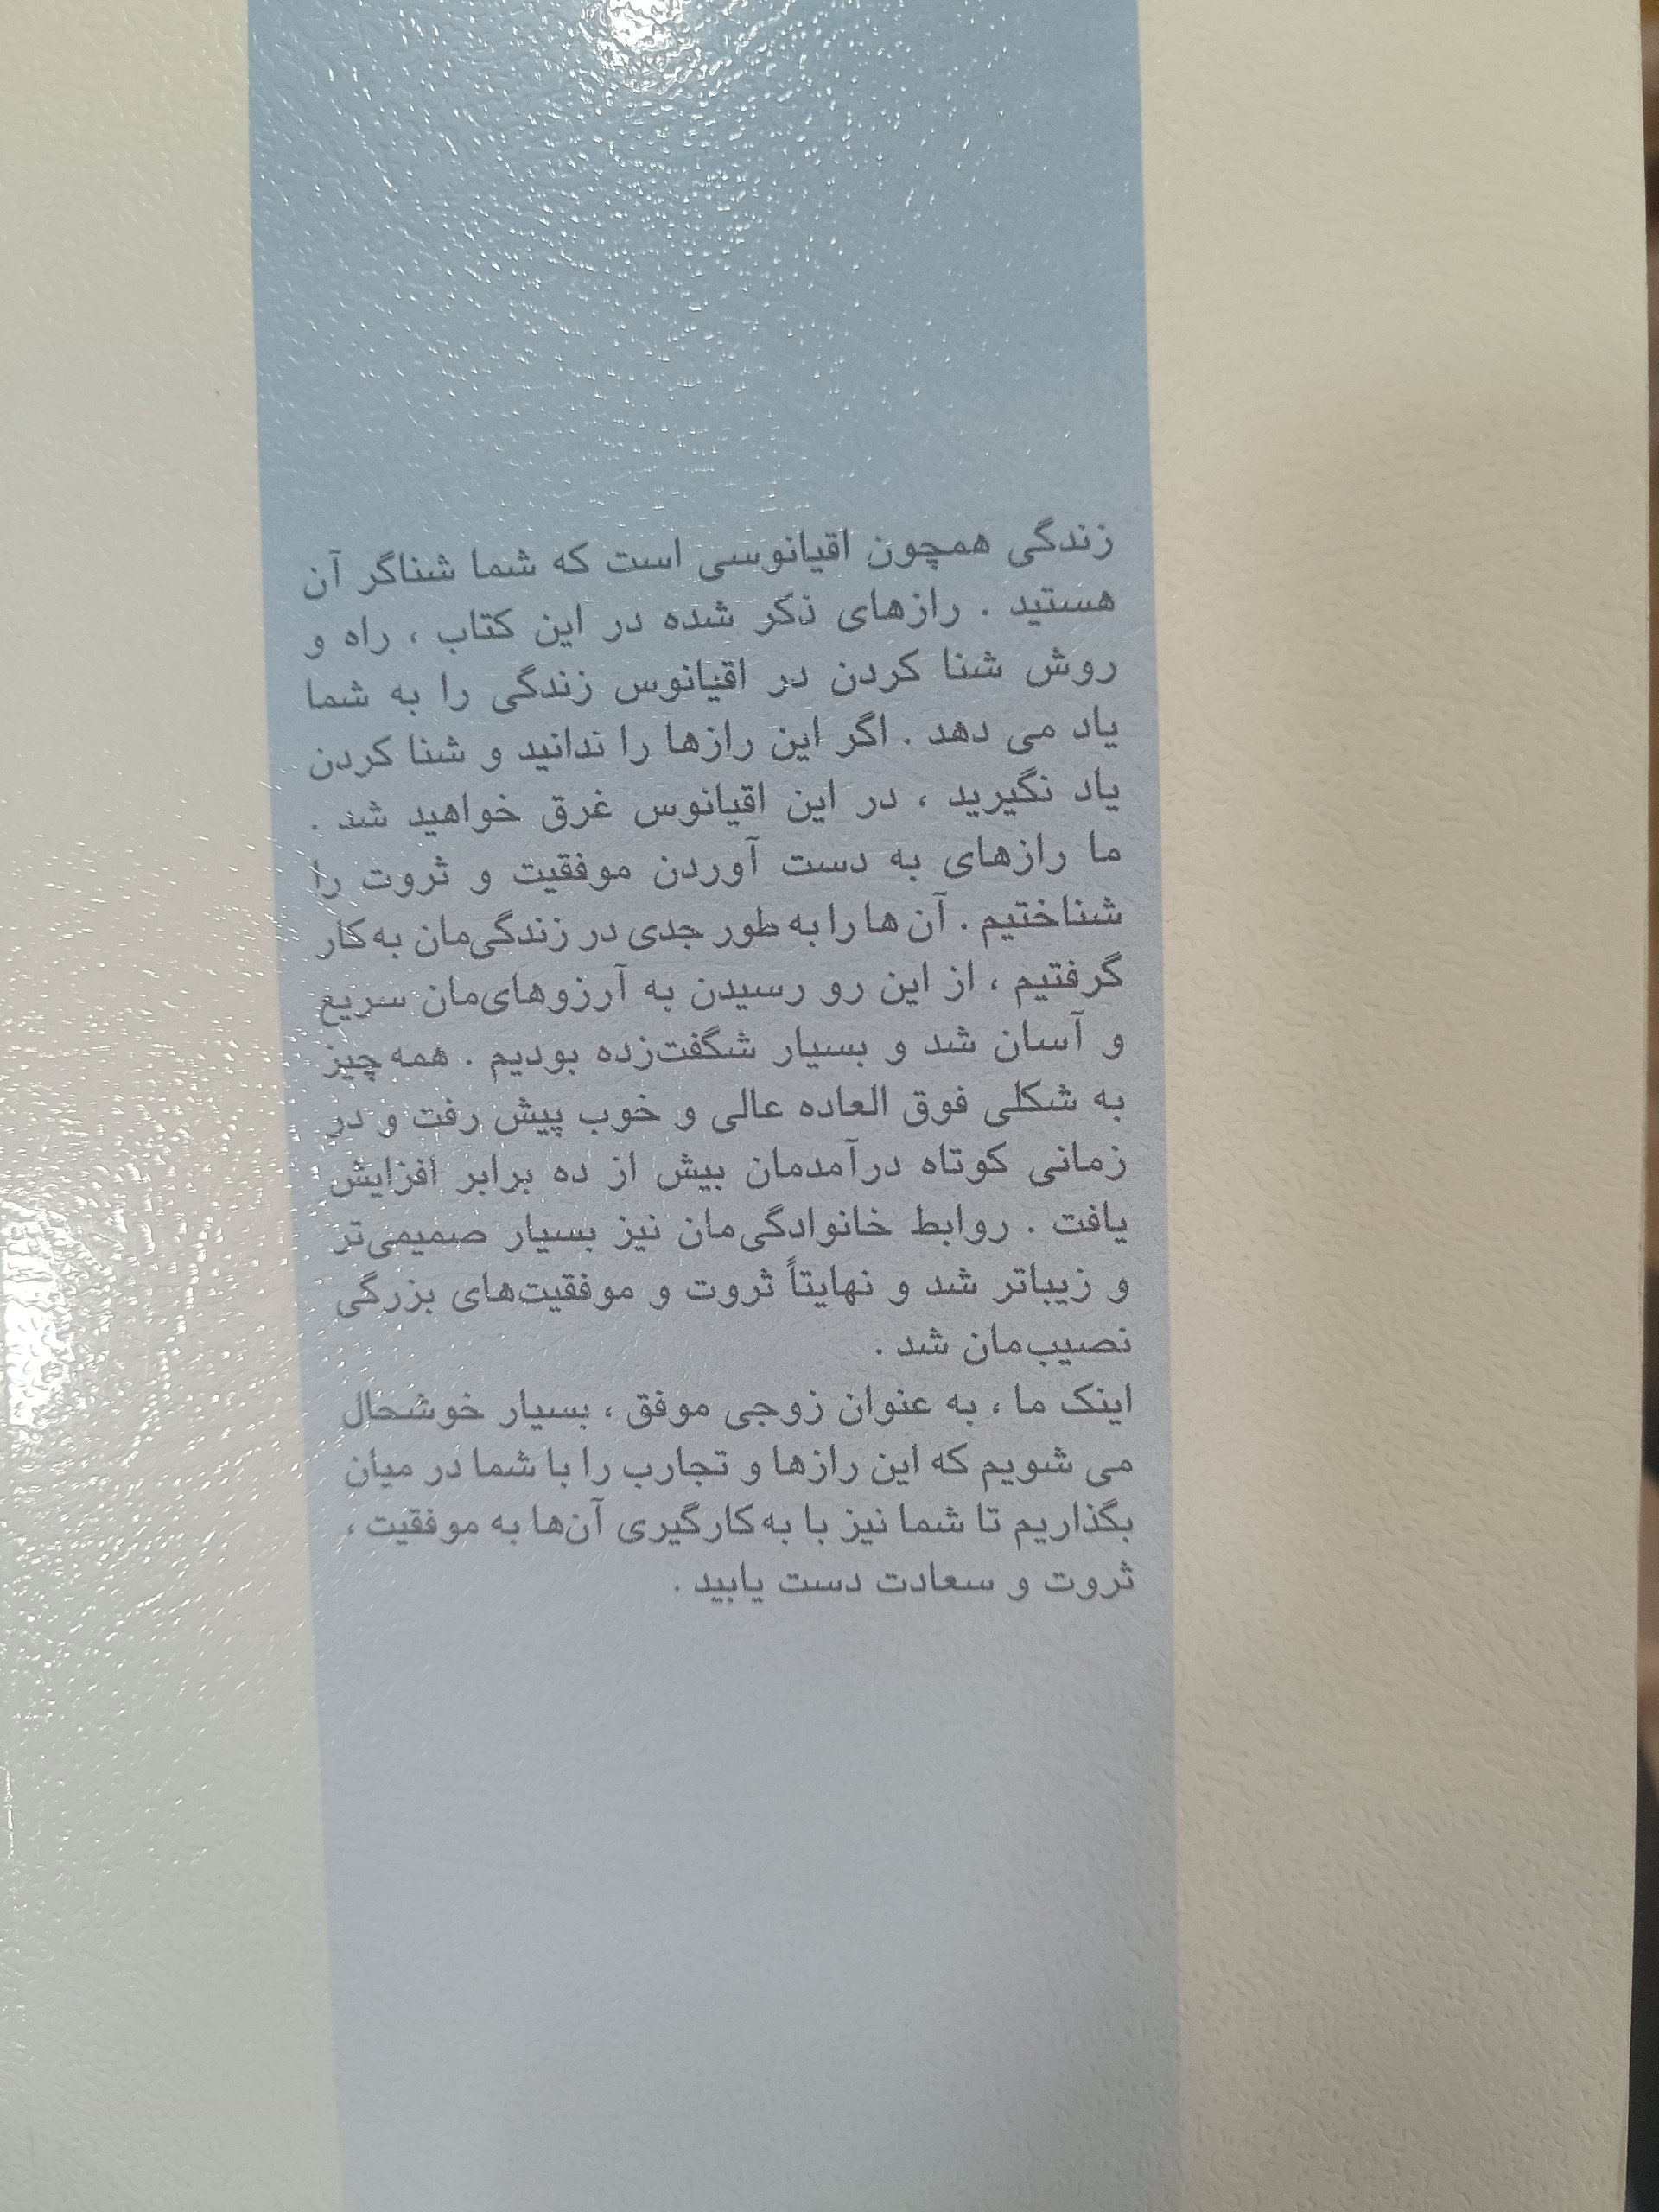 زندگی همچون اقیانوسی است که شما شناگر آن
هستید . رازهای ذکر شده در این کتاب ، راه و
روش شنا کردن در اقیانوس زندگی را به شما
یاد می دهد . اگر این رازها را ندانید و شنا کردن
یاد نگیرید ، در این اقیانوس غرق خواهید شد .
ما رازهای به دست آوردن موفقیت و ثروت را
شناختیم . آن ها را به طور جدی در زندگی‌مان به کار
گرفتیم ، از این رو رسیدن به آرزوهای‌مان سریع
و آسان شد و بسیار شگفت‌زده بودیم . همه چیز
به شکلی فوق العاده عالی و خوب پیش رفت و در
زمانی کوتاه درآمدمان بیش از ده برابر افزایش
یافت . روابط خانوادگی‌مان نیز بسیار صمیمی‌تر
و زیباتر شد و نهایتاً ثروت و موفقیت‌های بزرگی
نصیب‌مان شد .
اینک ما ، به عنوان زوجی موفق ، بسیار خوشحال
می شویم که این رازها و تجارب را با شما در میان
بگذاریم تا شما نیز با به‌کارگیری آن‌ها به موفقیت ،
ثروت و سعادت دست یابید .